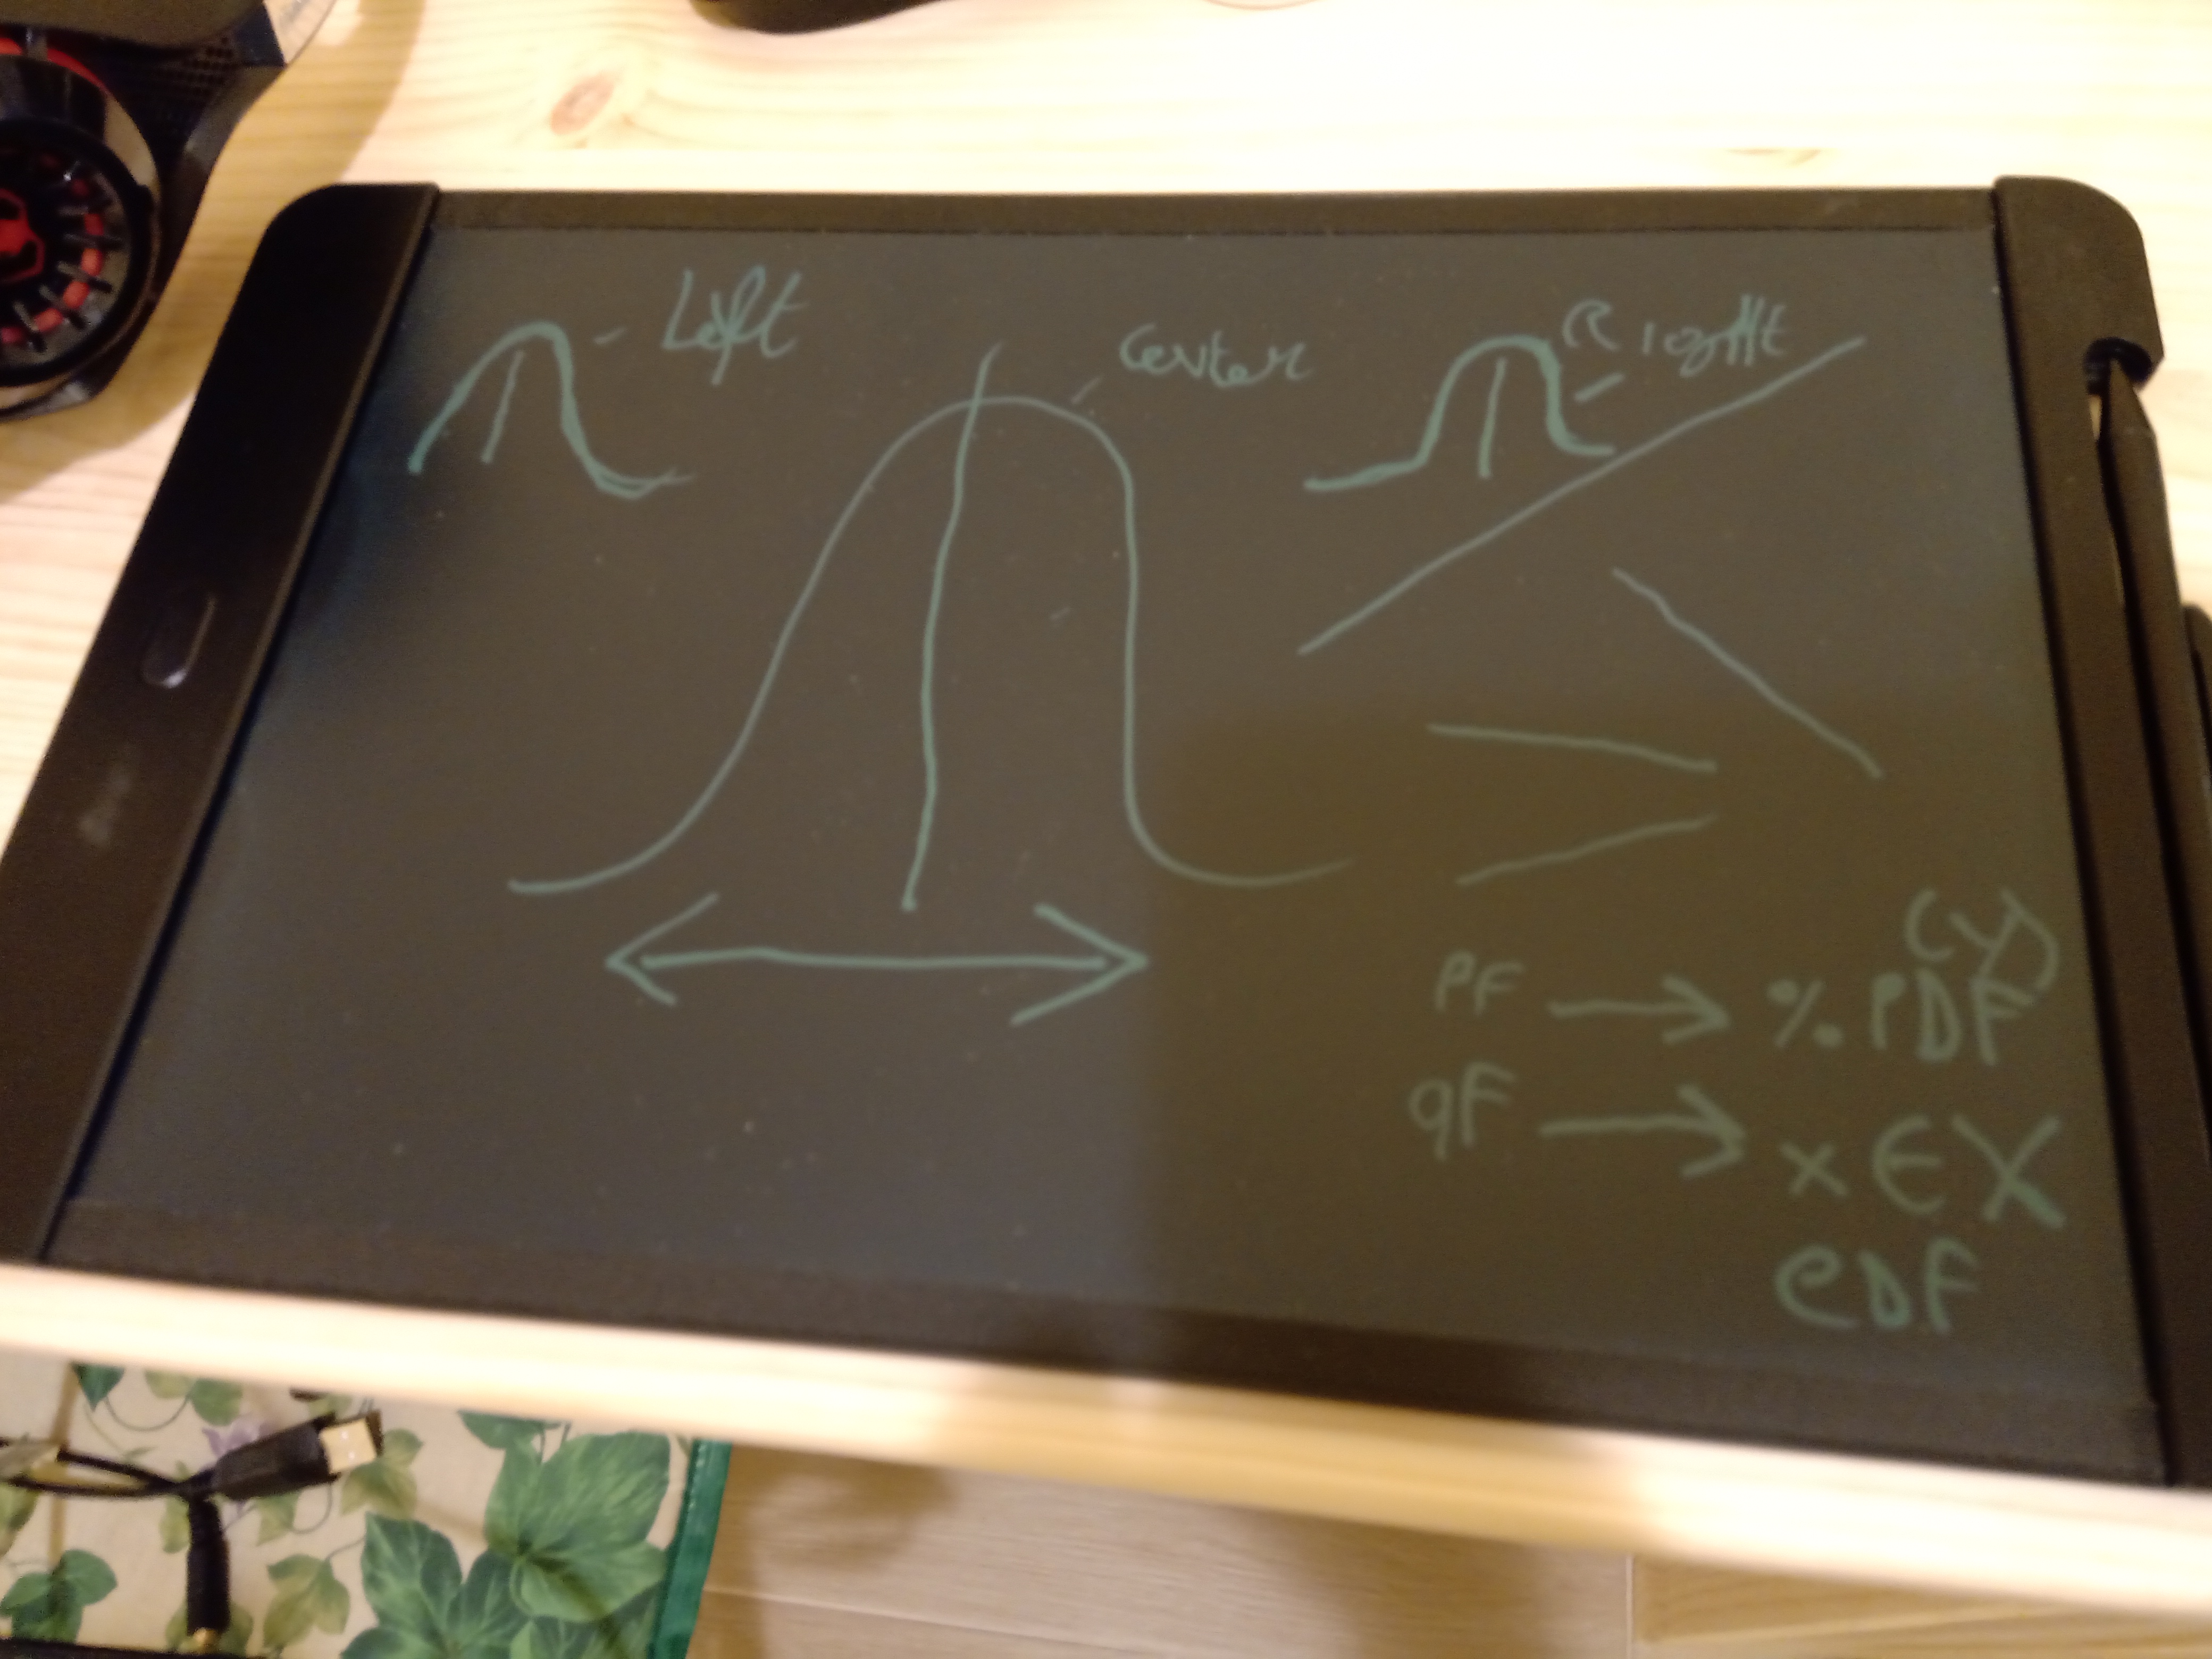 Left
Center
Right
PF → %. PDF
qF → x E X
CDF